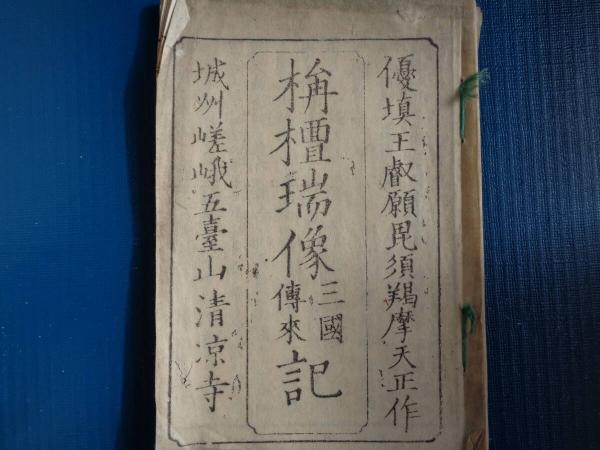 優填王叡願毘須羯摩天正作
栴檀瑞像三國傳來記
城州嵯峨五臺山清凉寺